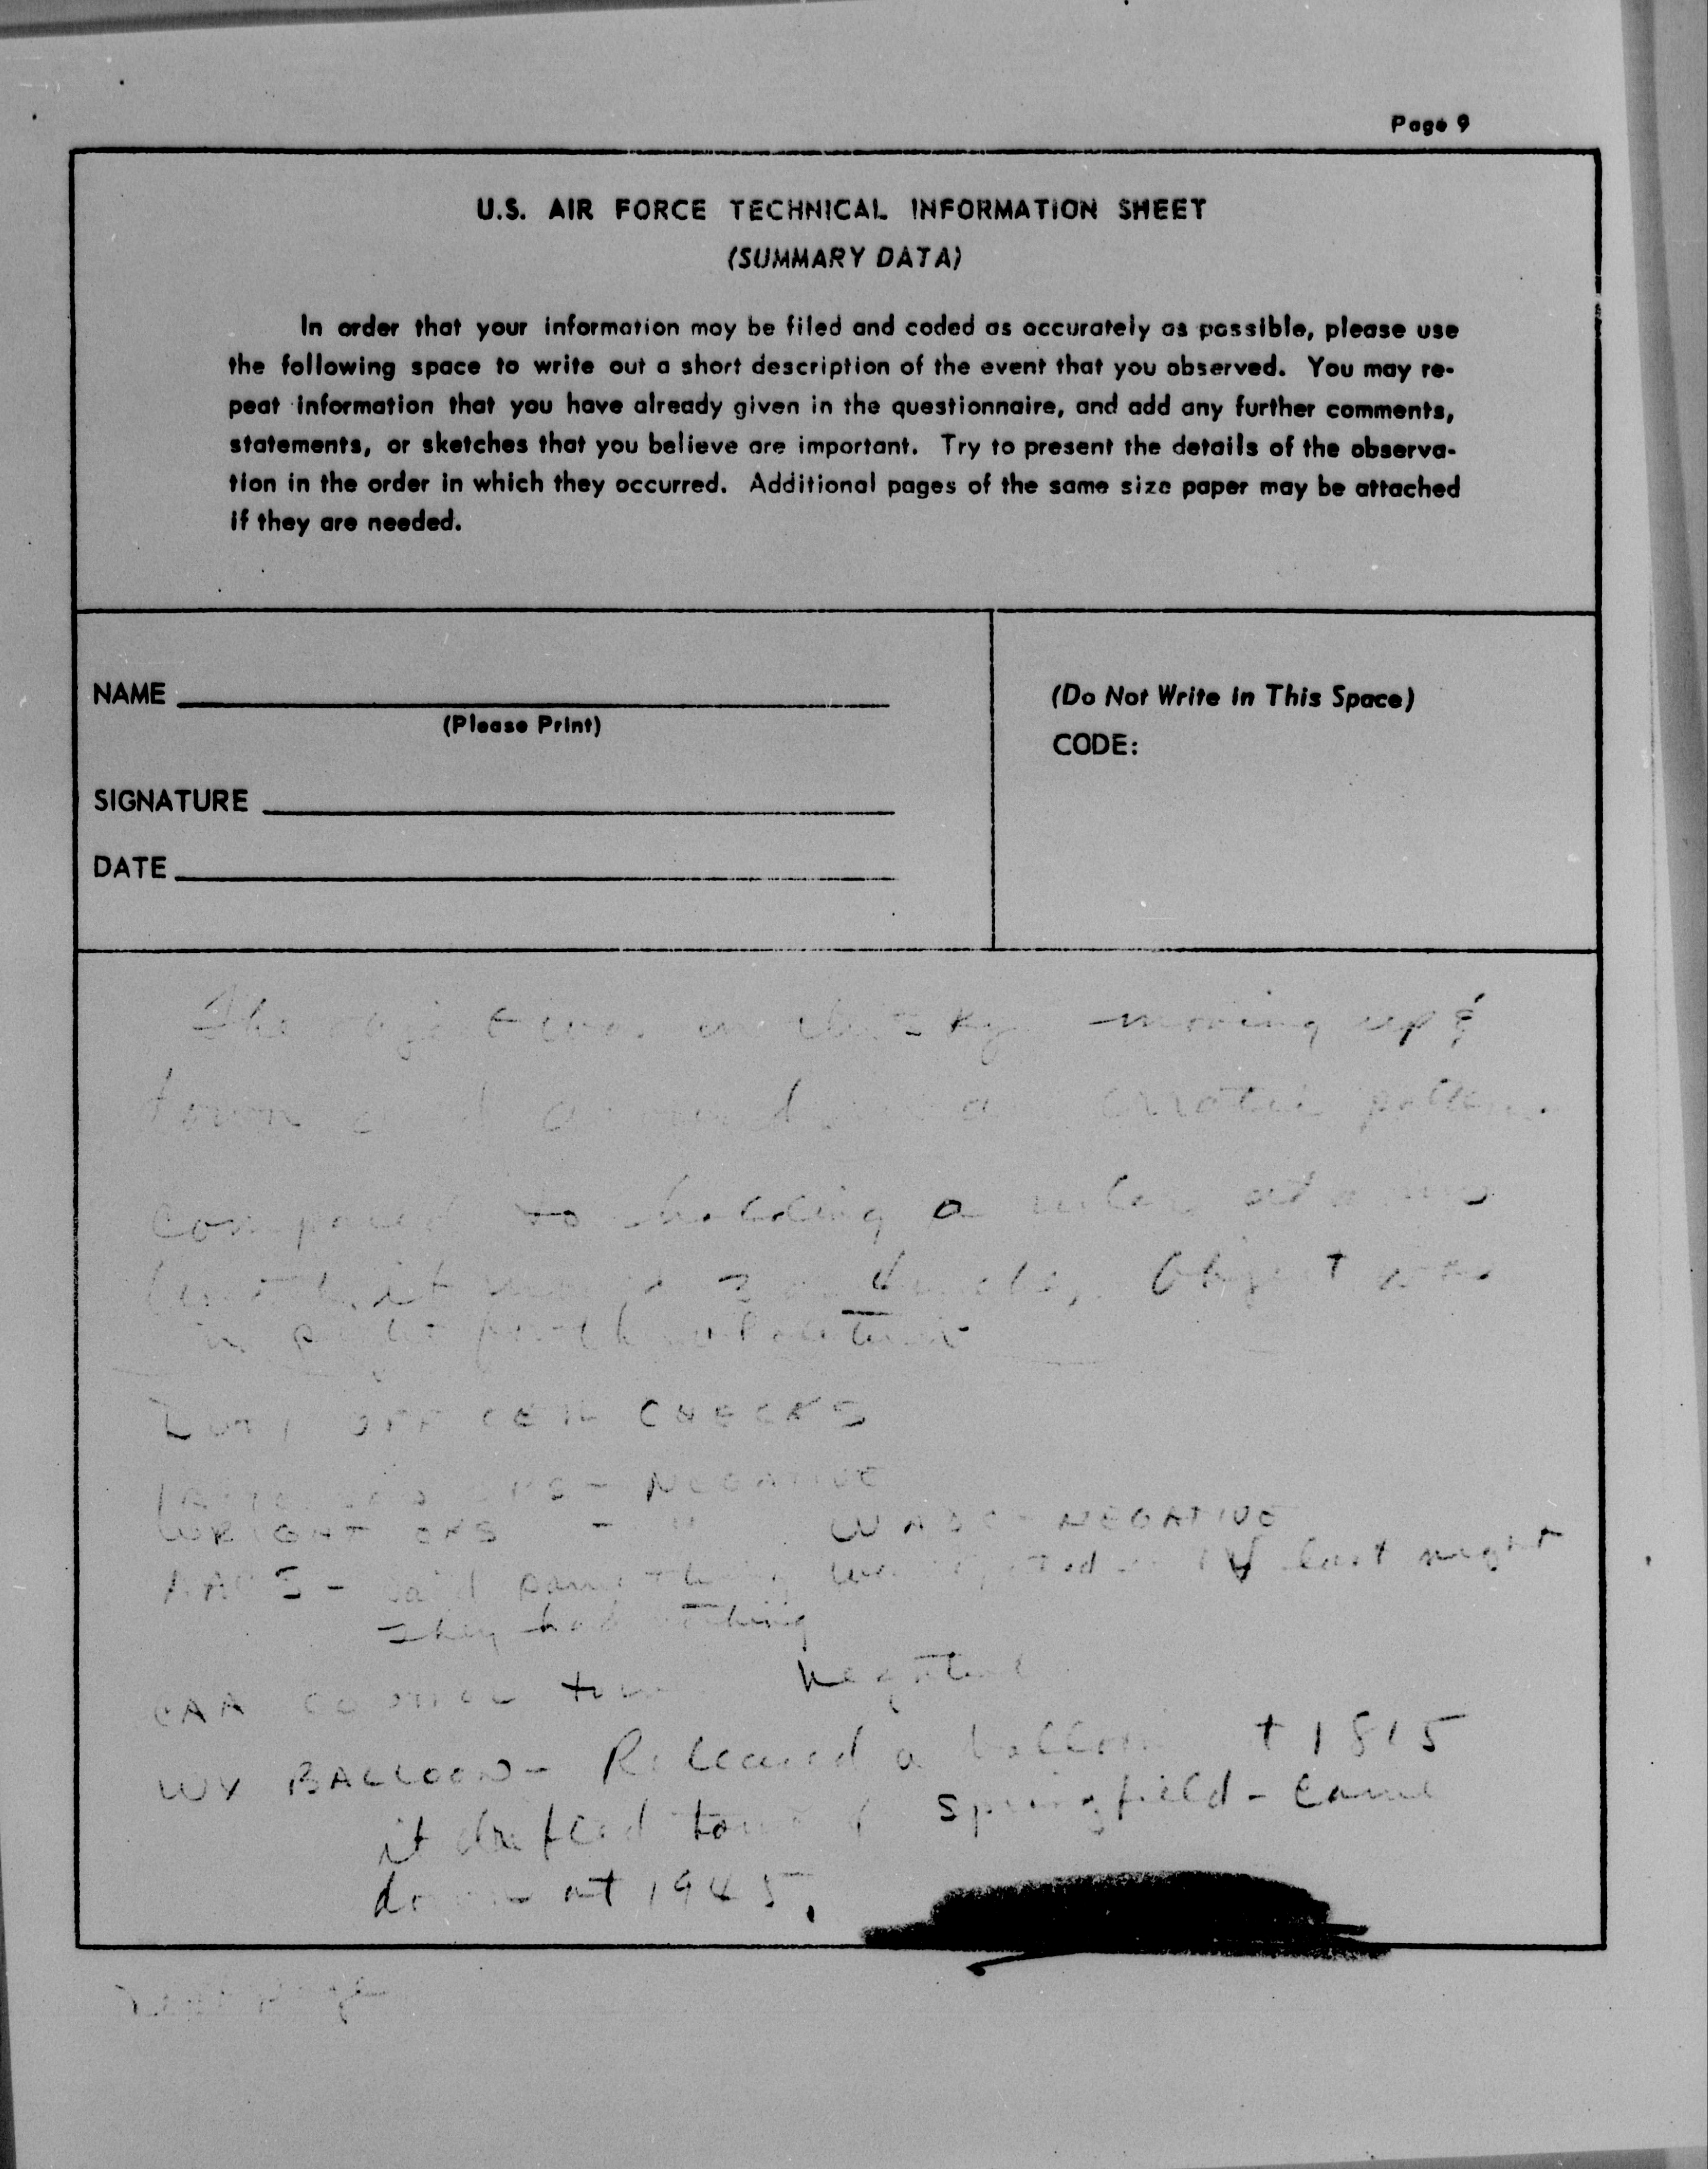 Page 9
U.S. AIR FORCE TECHNICAL INFORMATION SHEET
(SUMMARY DATA)
In order that your information may be filed and coded as accurately as possible, please use
the following space to write out a short description of the event that you observed. You may re-
peat information that you have already given in the questionnaire, and add any further comments,
statements, or sketches that you believe are important. Try to present the details of the observa-
tion in the order in which they occurred. Additional pages of the same size paper may be attached
if they are needed.
NAME
(Please Print)
SIGNATURE
DATE
(Do Not Write in This Space)
CODE:
The object was in the sky moving up &
down and around in an erratic pattern.
Compared to holding a ruler at arms
length it moved 3 or 4 inches. Object was
in
DUTY OFFICER CHECKS
OPS - NEGATIVE
WRIGHT OPS - " WADC - NEGATIVE
- said something was last night
They had nothing
CAA CONTROL tower negative
WX BALLOON - Released a balloon at 1815
it drifted toward Springfield - came
down at 1945.